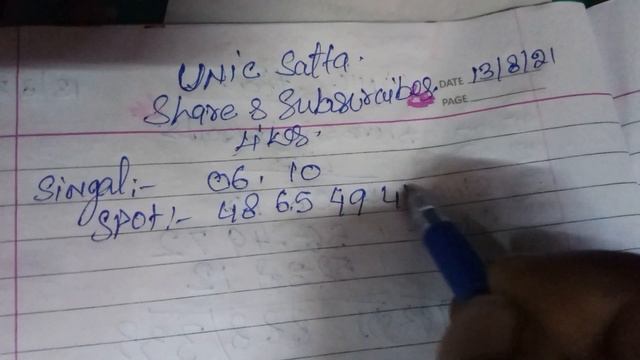 UNic Satta.
DATE 13/8/21
Share & Subsuraibes.
PAGE
4k
Singal:- 06. 10
SPOT:- 48 65 49 4